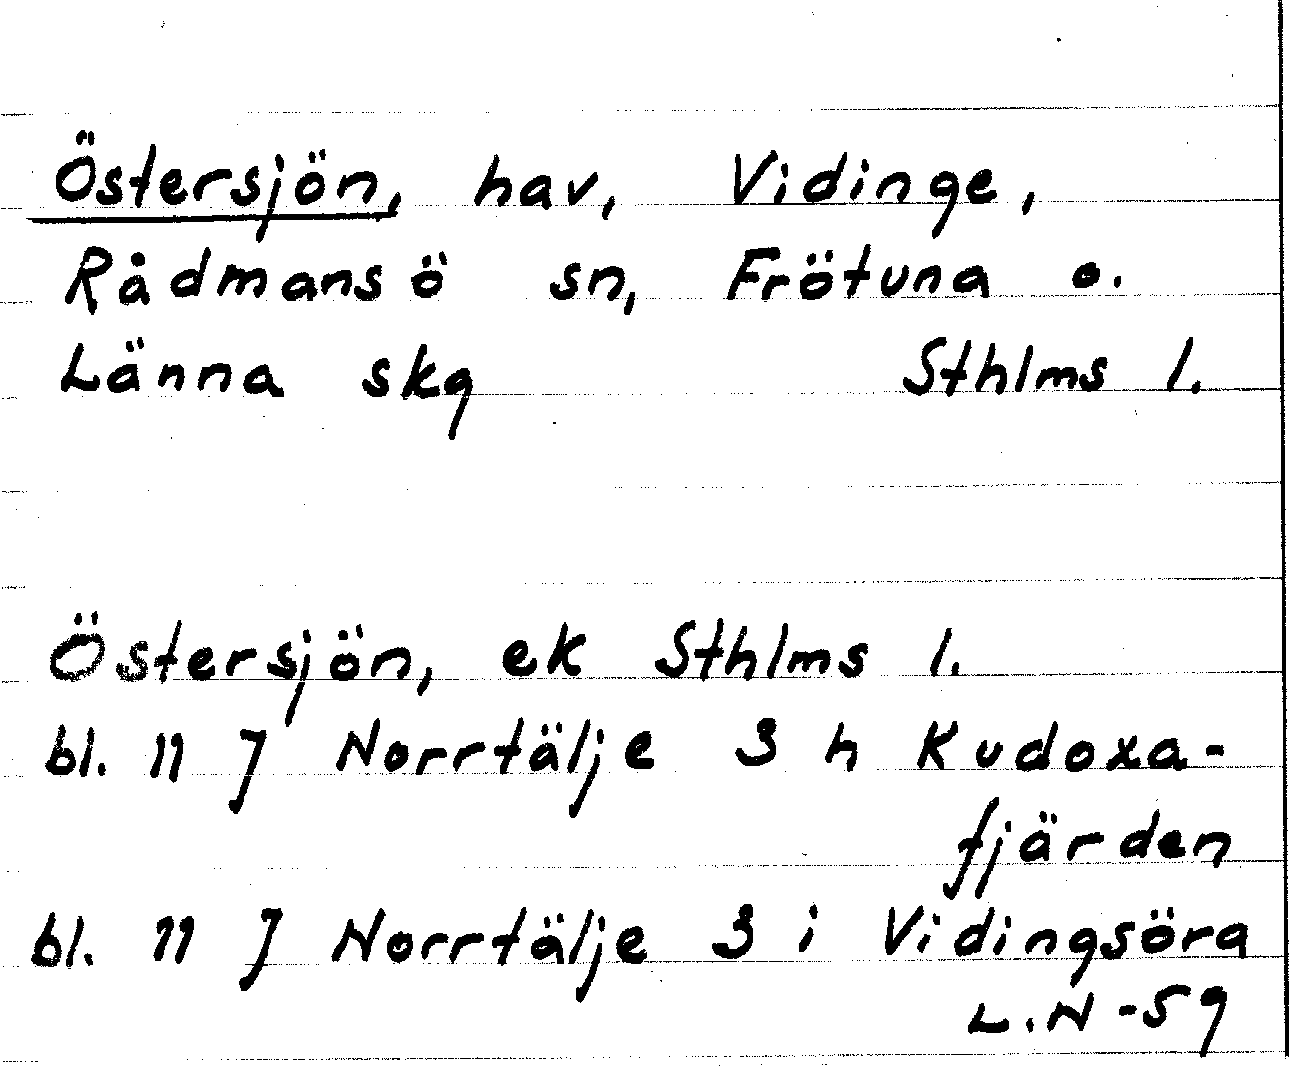 Östersjön, hav, Vidinge,
Rådmansö sn, Frötuna o.
Länna skg Sthlms l.
Östersjön, ek Sthlms l.
bl. 11 J Norrtälje 3 h Kudoxa-
fjärden
bl. 11 J Norrtälje 3 i Vidingsöra
L.N -59